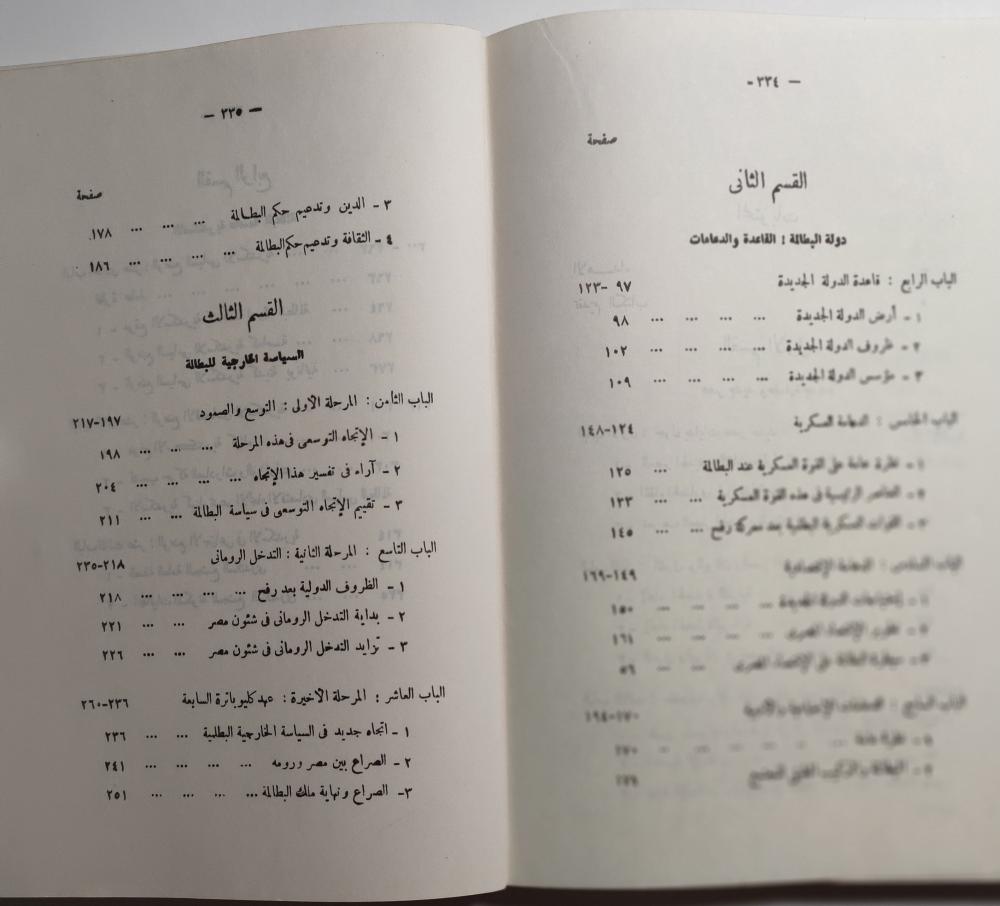 — ٣٣٤ -
صفحة
القسم الثانى
دولة البطالمة : القاعدة والدعامات
الباب الرابع : قاعدة الدولة الجديدة ٩٧ -١٢٣
١ - أرض الدولة الجديدة ... ... ... ... ٩٨
٢ - ظروف الدولة الجديدة ... ... ... ... ١٠٢
٣ - مؤسس الدولة الجديدة ... ... ... ... ١٠٩
الباب الخامس : الدعامة العسكرية ١٢٤-١٤٨
١ - نظرة عامة على القوة العسكرية عند البطالمة ... ١٢٥
٢ - العناصر الرئيسية فى هذه القوة العسكرية ... ... ١٣٣
٣ - القوات العسكرية البطلمية بعد معركة رفح ... ... ١٤٥
الباب السادس : الدعامة الإقتصادية ١٤٩-١٦٩
... ... ... ... ١٥٠
... ... ... ١٦٤
... ...
الباب السابع : ١٧٠-١٩٤
نظرة عامة
— ٣٣٥ —
صفحة
٣ - الدين وتدعيم حكم البطالمة ... ... ... ١٧٨
٤ - الثقافة وتدعيم حكم البطالمة ... ... ... ... ١٨٦
القسم الثالث
السياسة الخارجية للبطالمة
الباب الثامن : المرحلة الأولى : التوسع والصمود ١٩٧-٢١٧
١ - الإتجاه التوسعى فى هذه المرحلة ... ... ... ١٩٨
٢ - آراء فى تفسير هذا الإتجاه ... ... ... ... ٢٠٤
٣ - تقييم الإتجاه التوسعى فى سياسة البطالمة ... ... ٢١١
الباب التاسع : المرحلة الثانية : التدخل الرومانى ٢١٨-٢٣٥
١ - الظروف الدولية بعد رفح ... ... ... ... ٢١٨
٢ - بداية التدخل الرومانى فى شئون مصر ... ... ٢٢١
٣ - تزايد التدخل الرومانى فى شئون مصر ... ... ٢٢٦
الباب العاشر : المرحلة الأخيرة : عهد كليوباترة السابعة ٢٣٦-٢٦٠
١ - اتجاه جديد فى السياسة الخارجية البطلمية ... ... ٢٣٦
٢ - الصراع بين مصر ورومه ... ... ... ... ٢٤١
٣- الصراع ونهاية ملك البطالمة ... ... ... ... ٢٥١